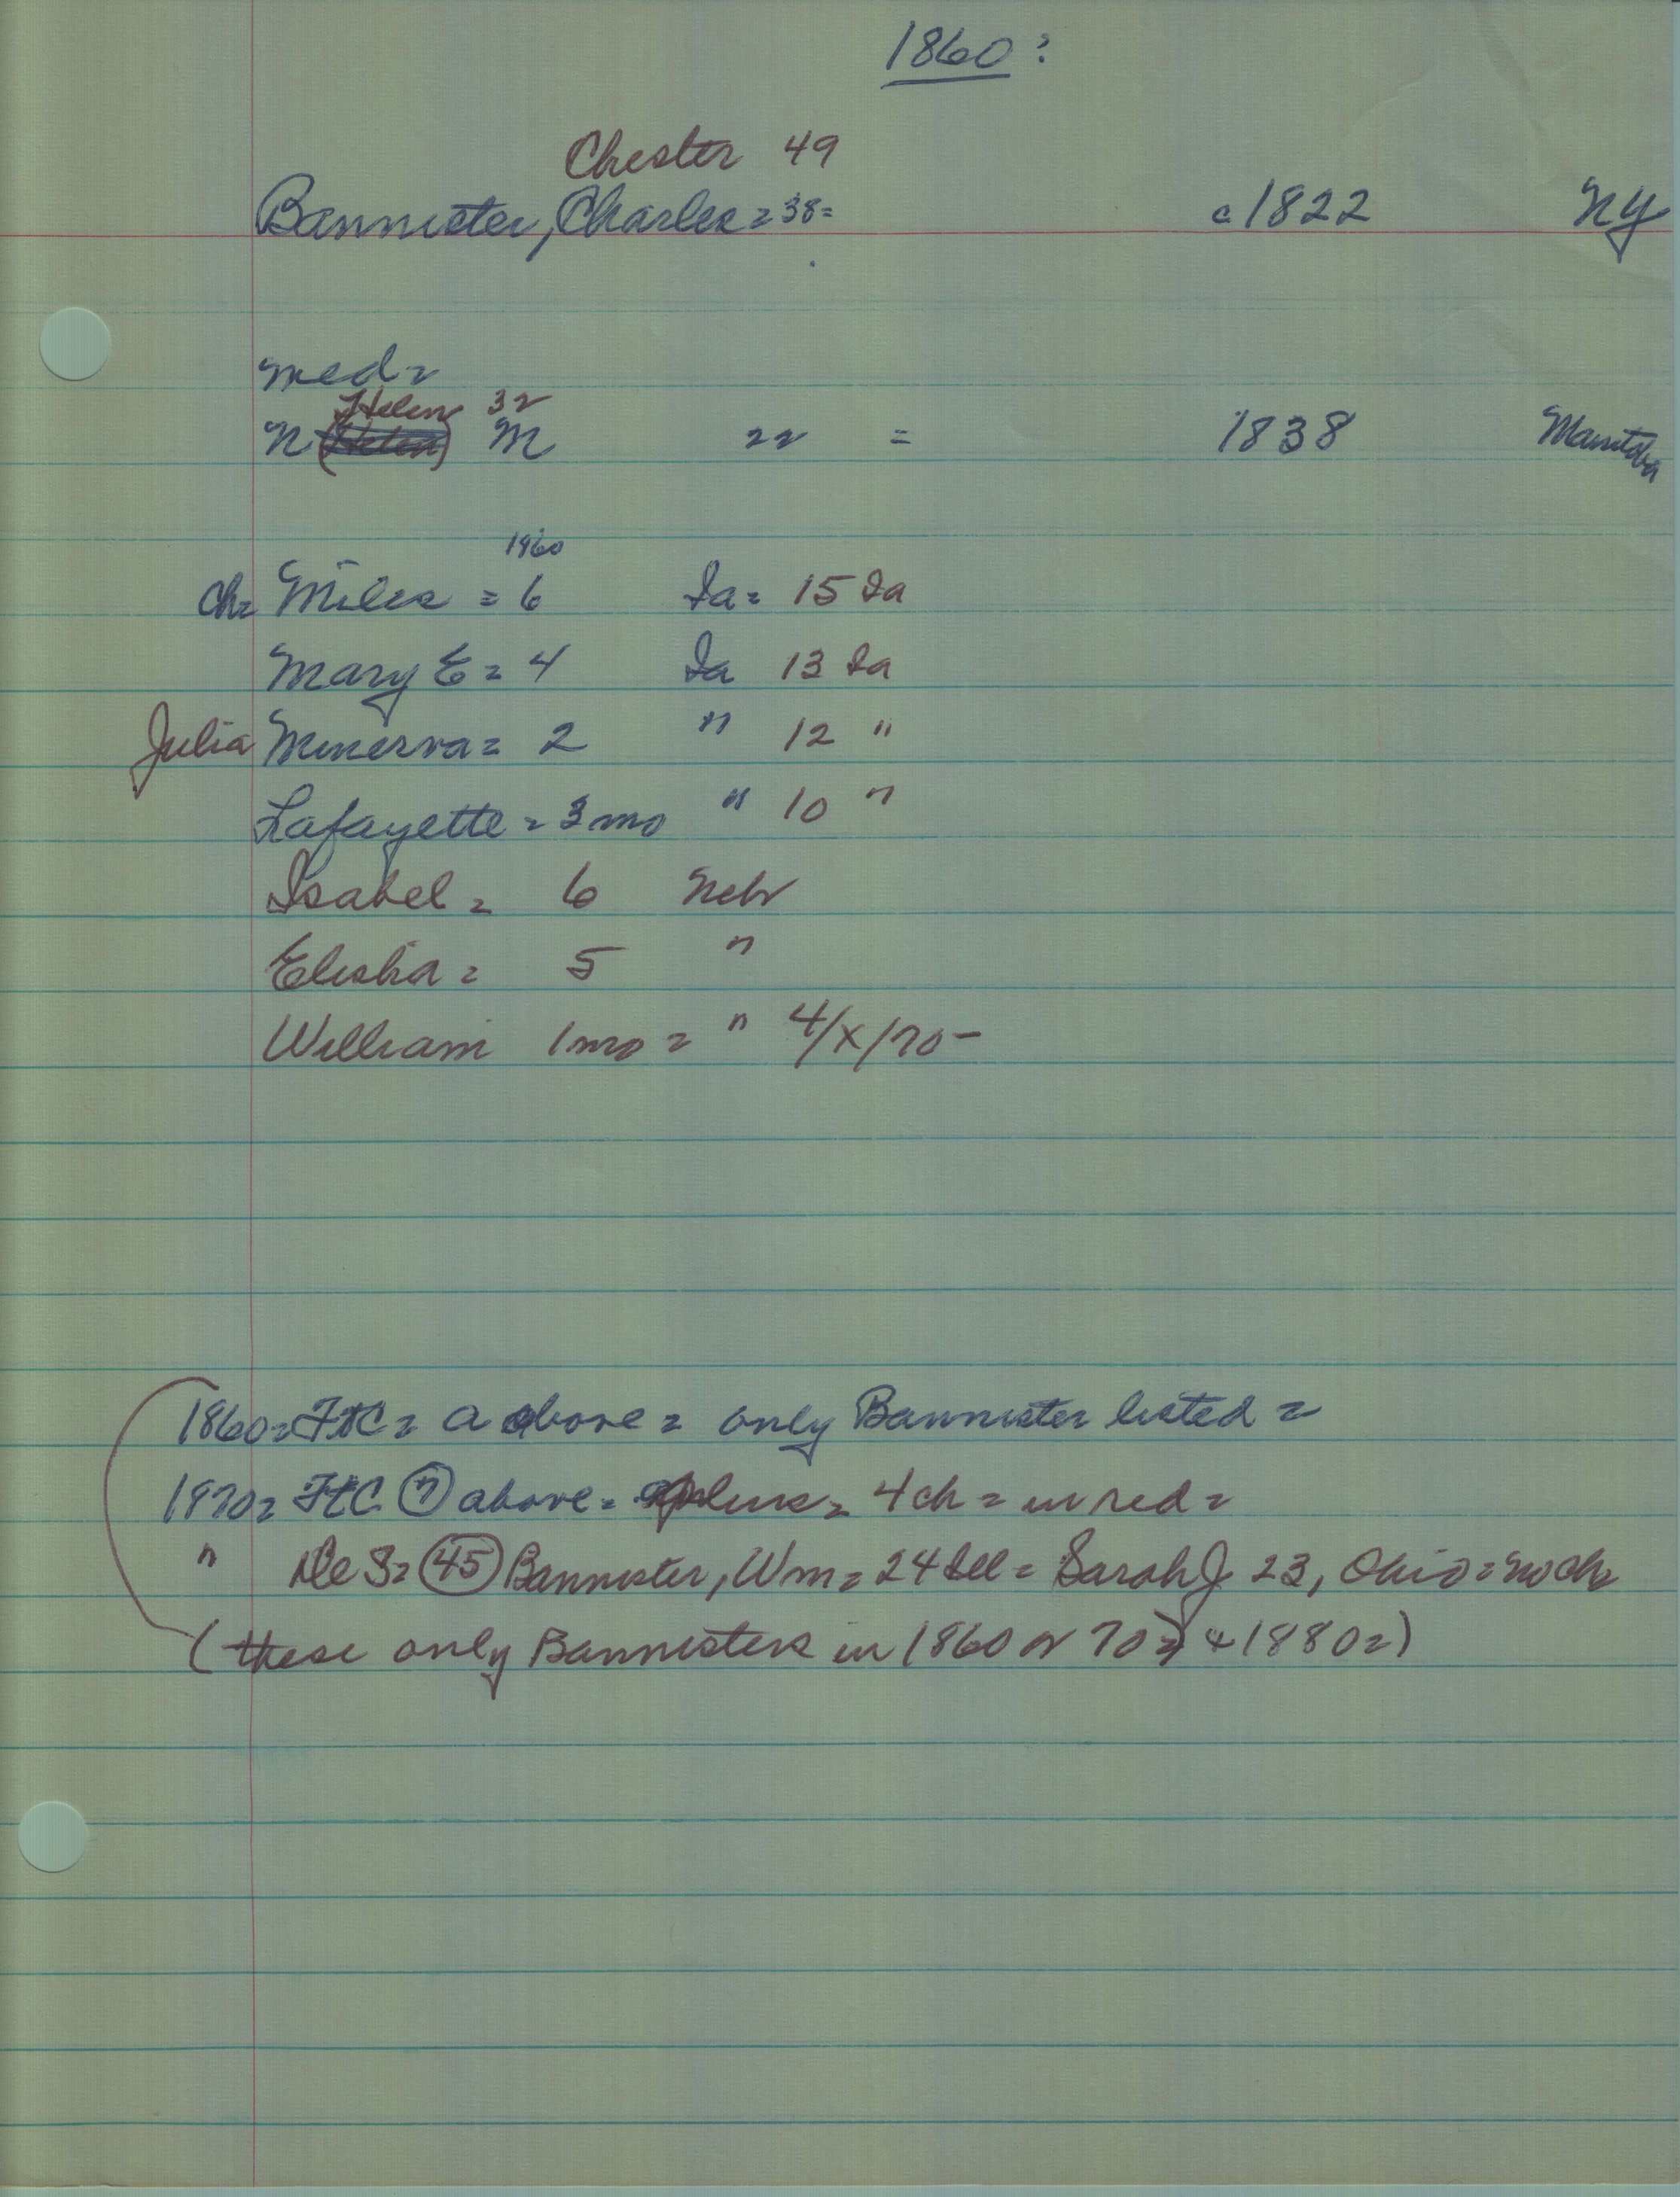 1860:
Chester 49
Bannister, Charles = 38 = c 1822 NY
med =
Helen 32
N (Helen) M 22 = 1838 Manitoba
1960
Ch = Miles = 6 Ia = 15 Ia
Mary E = 4 Ia 13 Ia
Julia Minerva = 2 " 12 "
Lafayette = 3 mo " 10 "
Isabel = 6 Nebr
Elisha = 5 "
William 1 mo = " 4/x/70 -
1860 = FtC = a above = only Bannister listed =
1870 = FtC (7) above = plus = 4 ch = in red =
" De S = (45) Bannister, Wm = 24 Ill = Sarah J 23, Ohio = no ch =
(these only Bannisters in 1860 or 70 =) + 1880 =)